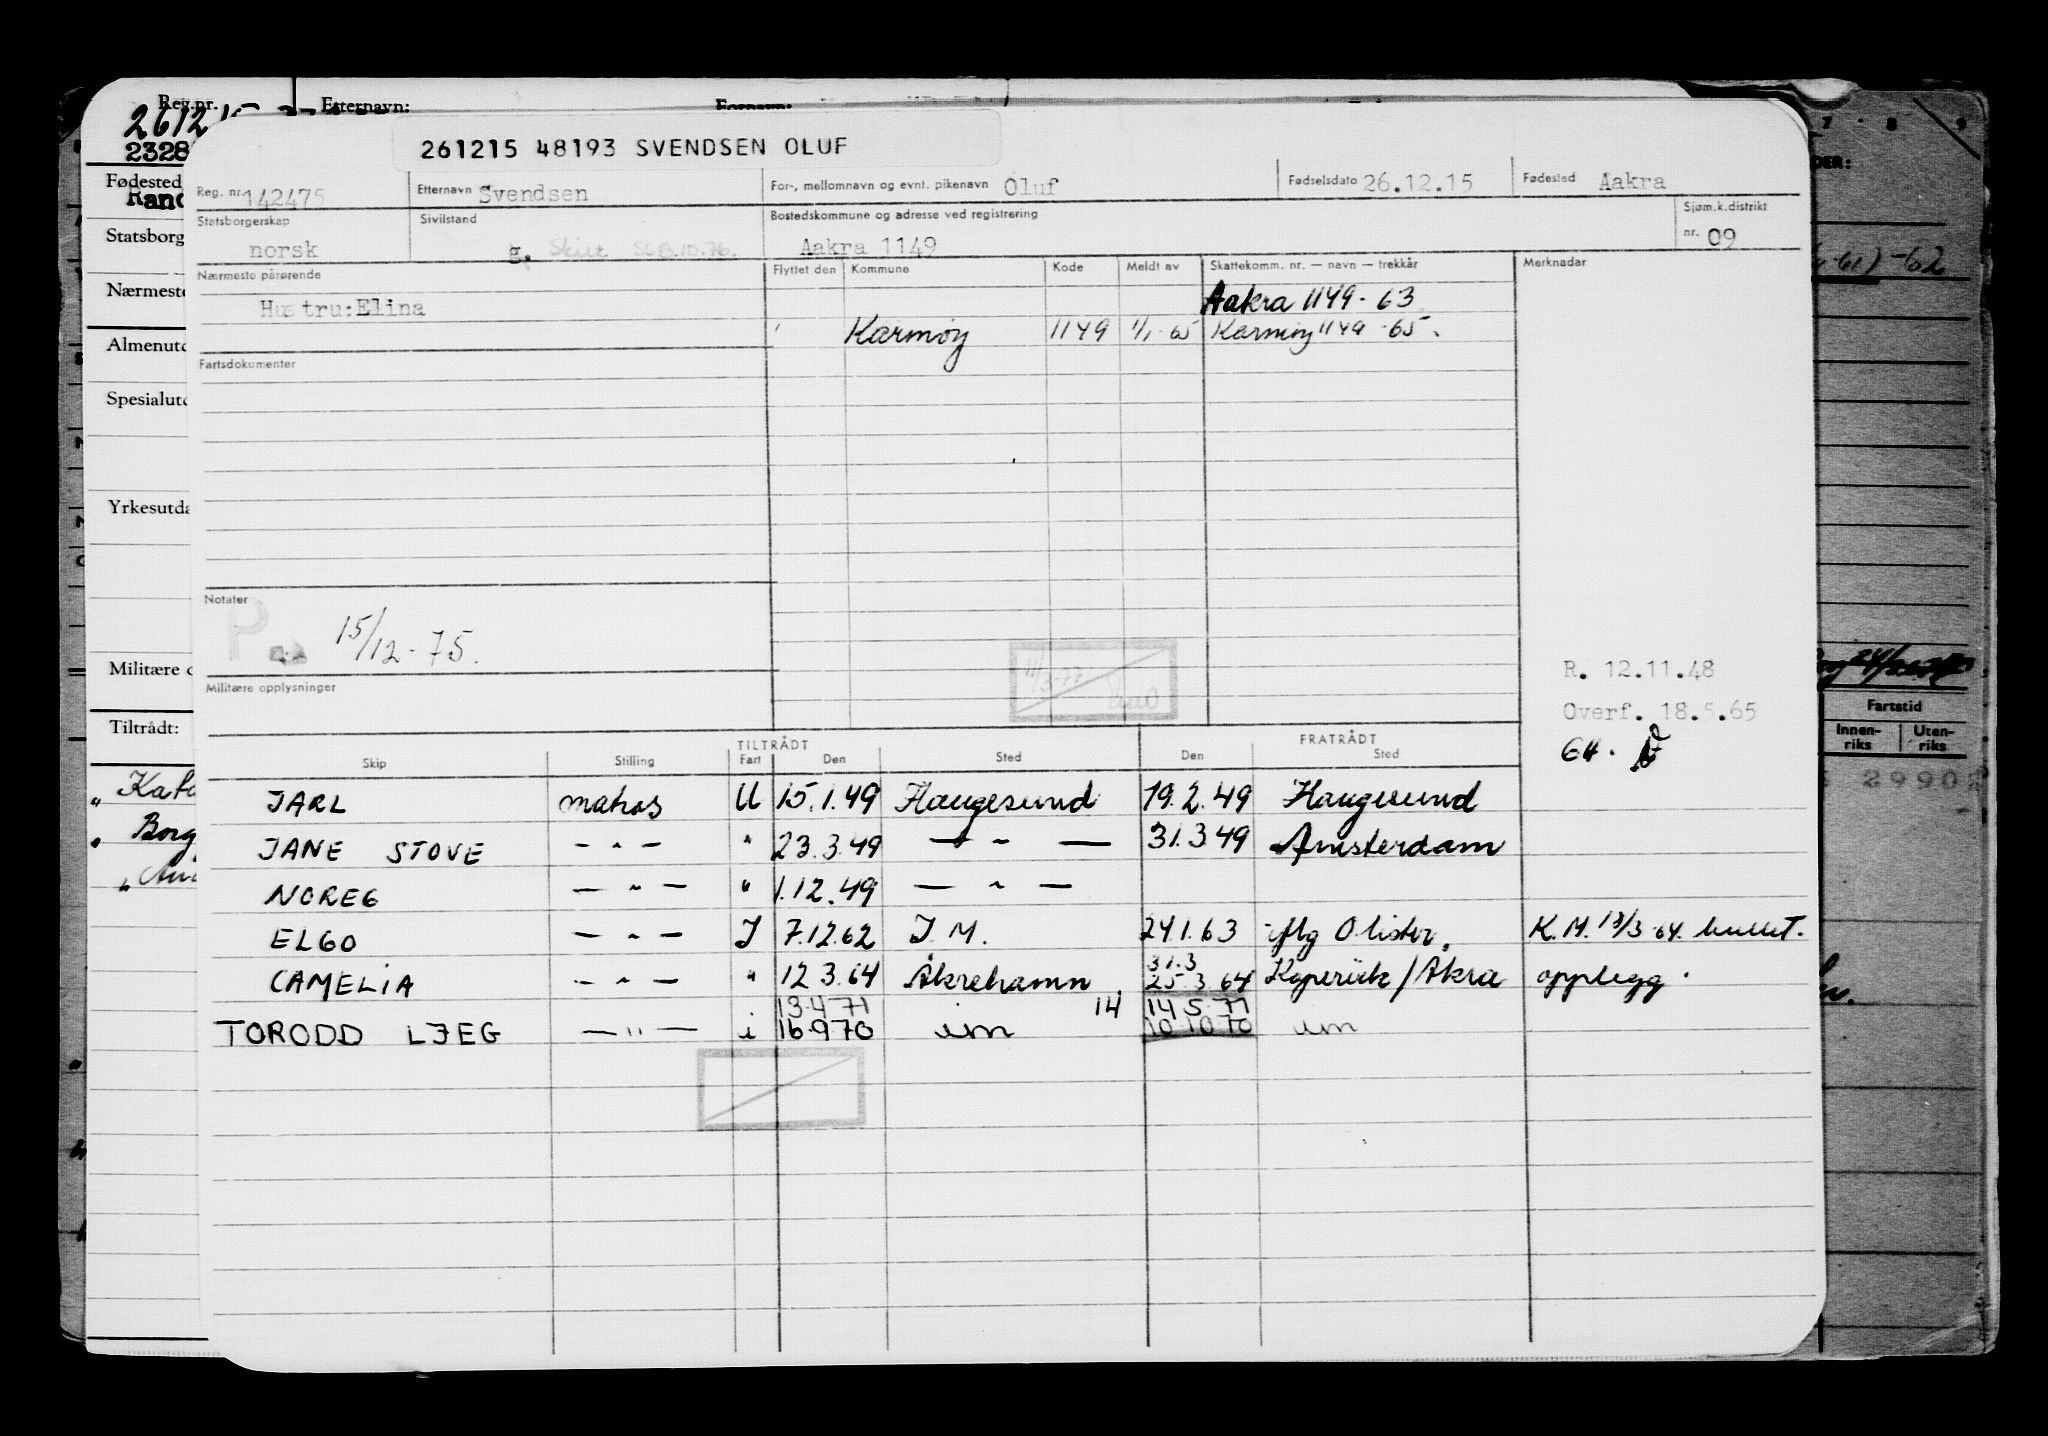 Reg.nr. Etternavn: Fornavn:
261215
2328
261215 48193 SVENDSEN OLUF
Reg. nr. 142475 Etternavn Svendsen For-, mellomnavn og evnt. pikenavn Oluf Fødselsdato 26.12.15 Fødested Aakra
Statsborgerskap norsk Sivilstand g. Skilt SSB.10.76. Bostedskommune og adresse ved registrering Aakra 1149 Sjøm.k.distrikt nr. 09
Nærmeste pårørende Flyttet den Kommune Kode Meldt av Skattekomm. nr. — navn — trekkår Merknader
Hustru: Elina Aakra 1149 - 63
Karmøy 1149 1/1-65 Karmøy 1149 - 65.
Fartsdokumenter
Notater
P. 15/12-75.
Militære opplysninger
11/3-77
R. 12.11.48
Overf. 18.5.65
64.
TILTRÅDT FRATRÅDT
Skip Stilling Fart Den Sted Den Sted
JARL matros U 15.1.49 Haugesund 19.2.49 Haugesund
JANE STOVE — " — " 23.3.49 — " — 31.3.49 Amsterdam
NOREG — " — " 1.12.49 — " —
ELGO — " — J 7.12.62 J M. 24.1.63 iflg O lister. K.M. 13/3-64.
CAMELIA — " — " 12.3.64 Åkrehamn 31.3 25.3.64 Kopervik/Åkra opplegg.
13.4.71 14 14.5.71
TORODD LJEG — " — i 16.9.70 um 10.10.70 um
Fødested
Rand
Statsborg
Nærmeste
Almenutd
Spesialutd
Yrkesutda
Militære o
Tiltrådt:
Kata
Borg
-61) -62
Fartstid
Innenriks Utenriks
2990
7 8 9
DER: